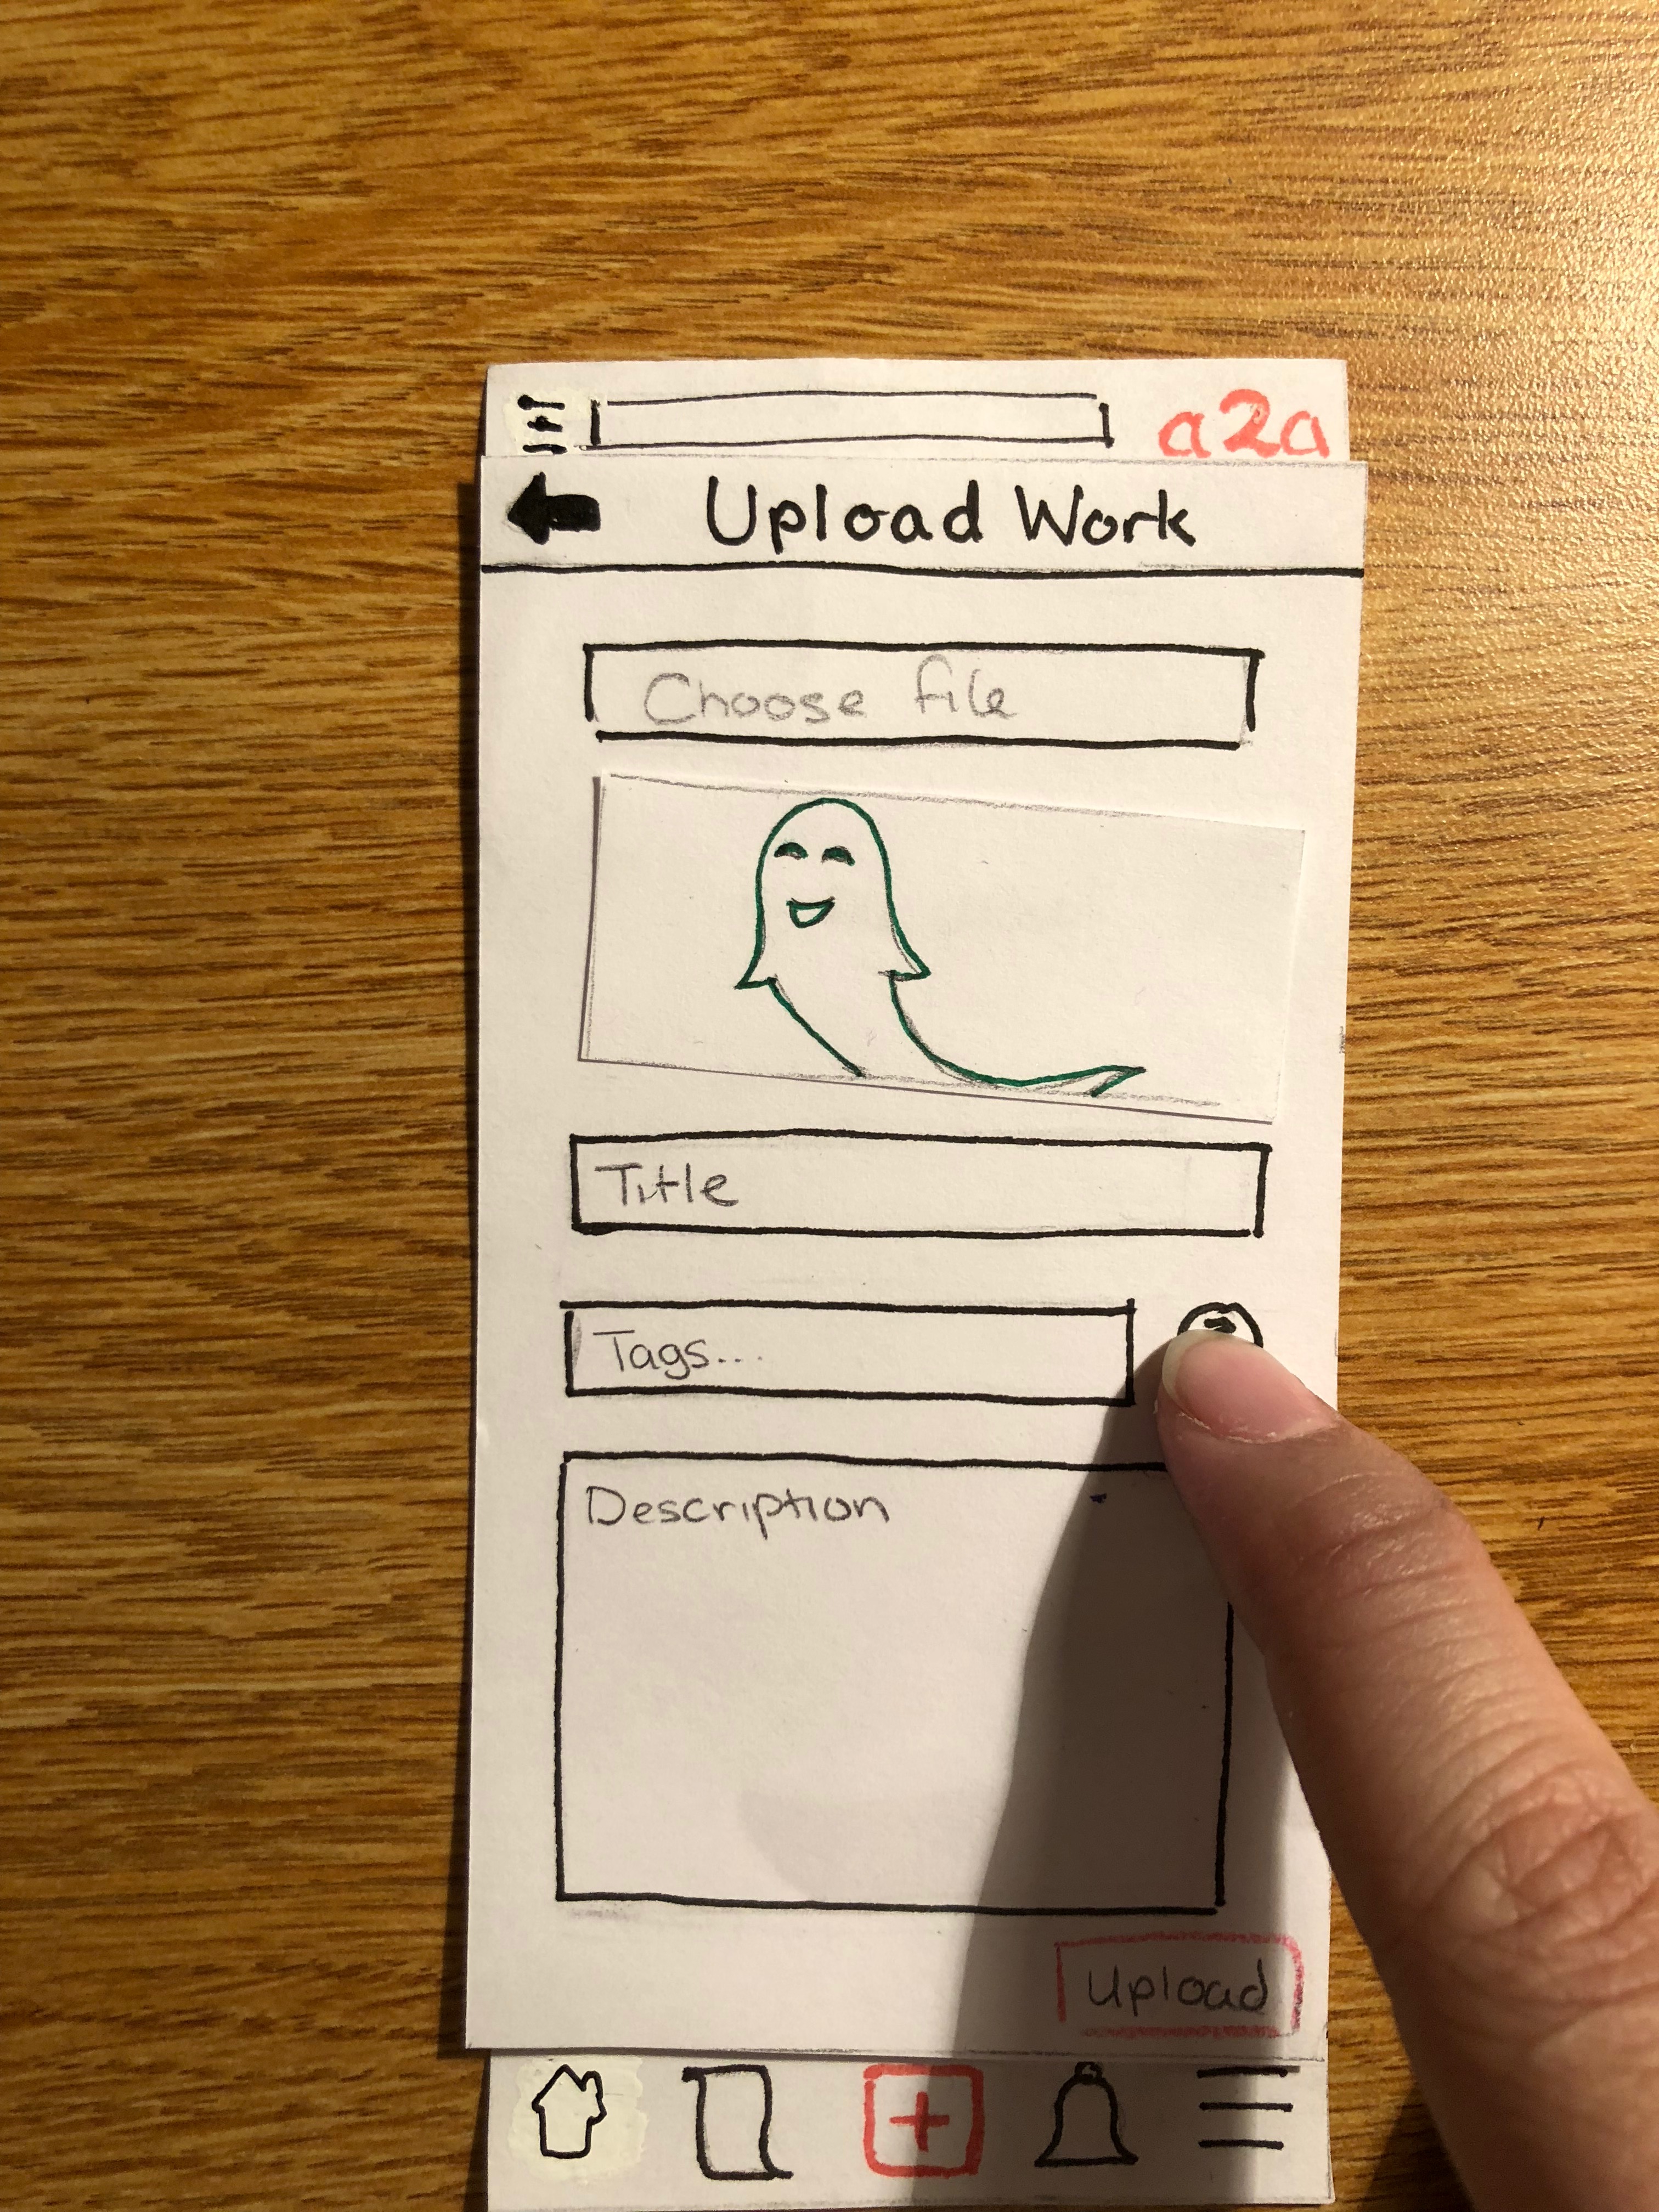 a2a
Upload Work
Choose file
Title
Tags...
Description
Upload